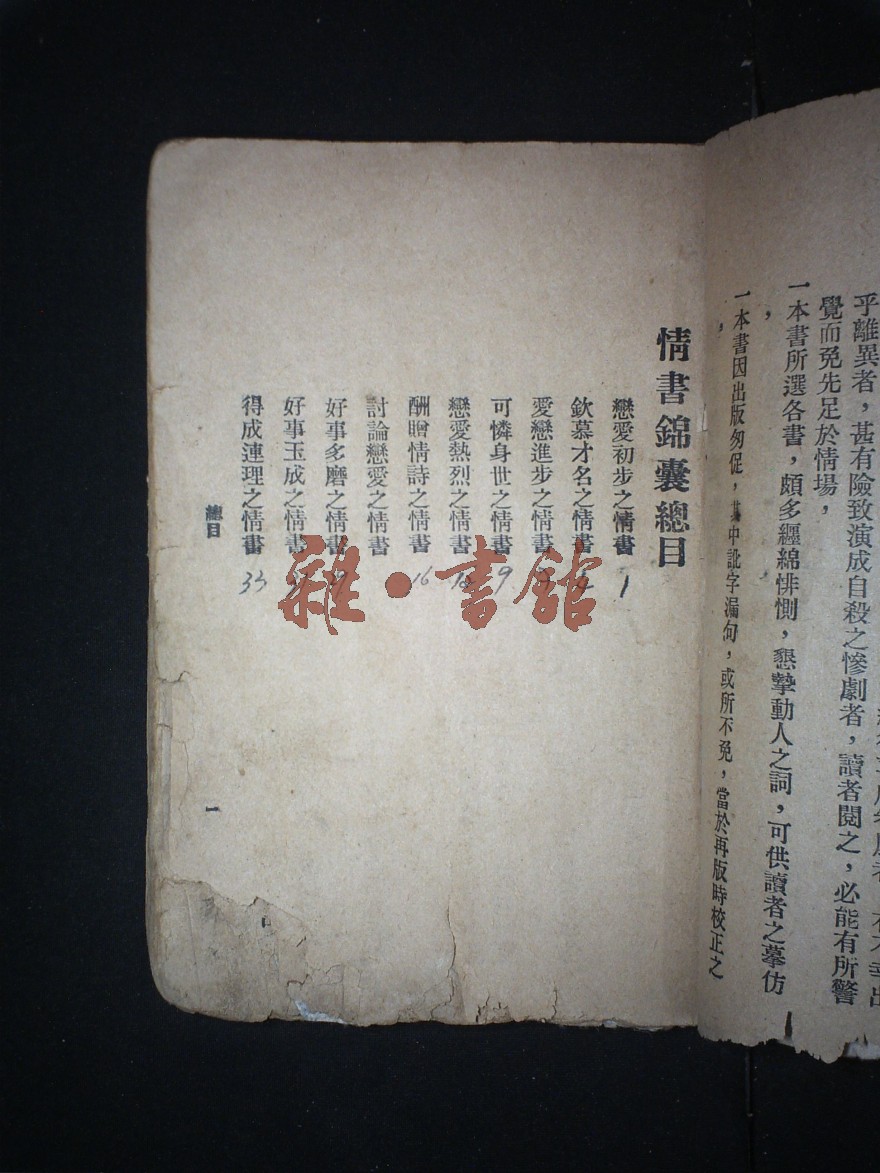 乎離異者，甚有險致演成自殺之慘劇者，讀者閱之，必能有所警
覺而免先足於情場，
一本書所選各書，頗多纏綿悱惻，懇摯動人之詞，可供讀者之摹仿
，
一本書因出版匆促，其中訛字漏句，或所不免，當於再版時校正之
，
情書錦囊總目
戀愛初步之情書 1
欽慕才名之情書
愛戀進步之情書
可憐身世之情書 9
戀愛熱烈之情書
酬贈情詩之情書 16
討論戀愛之情書
好事多磨之情書
好事玉成之情書
得成連理之情書 33
總目
一
雜·書館